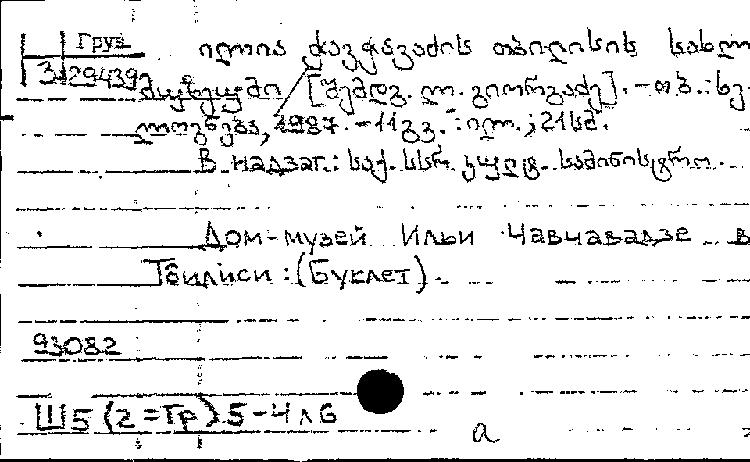 Груз
3-29439
ილია ჭავჭავაძის თბილისის სახლ
მუზეუმი [შემდგ. ლ. გიორგაძე]. – თბ. : ხე-
ლოვნება, 1987. – 11 გვ. : ილ. ; 21 სმ.
В надзаг.: საქ. სსრ კულტ. სამინისტრო.
Дом-музей Ильи Чавчавадзе в
Тбилиси : (Буклет).
93082
Ш5(2=Гр).5-4л6
а